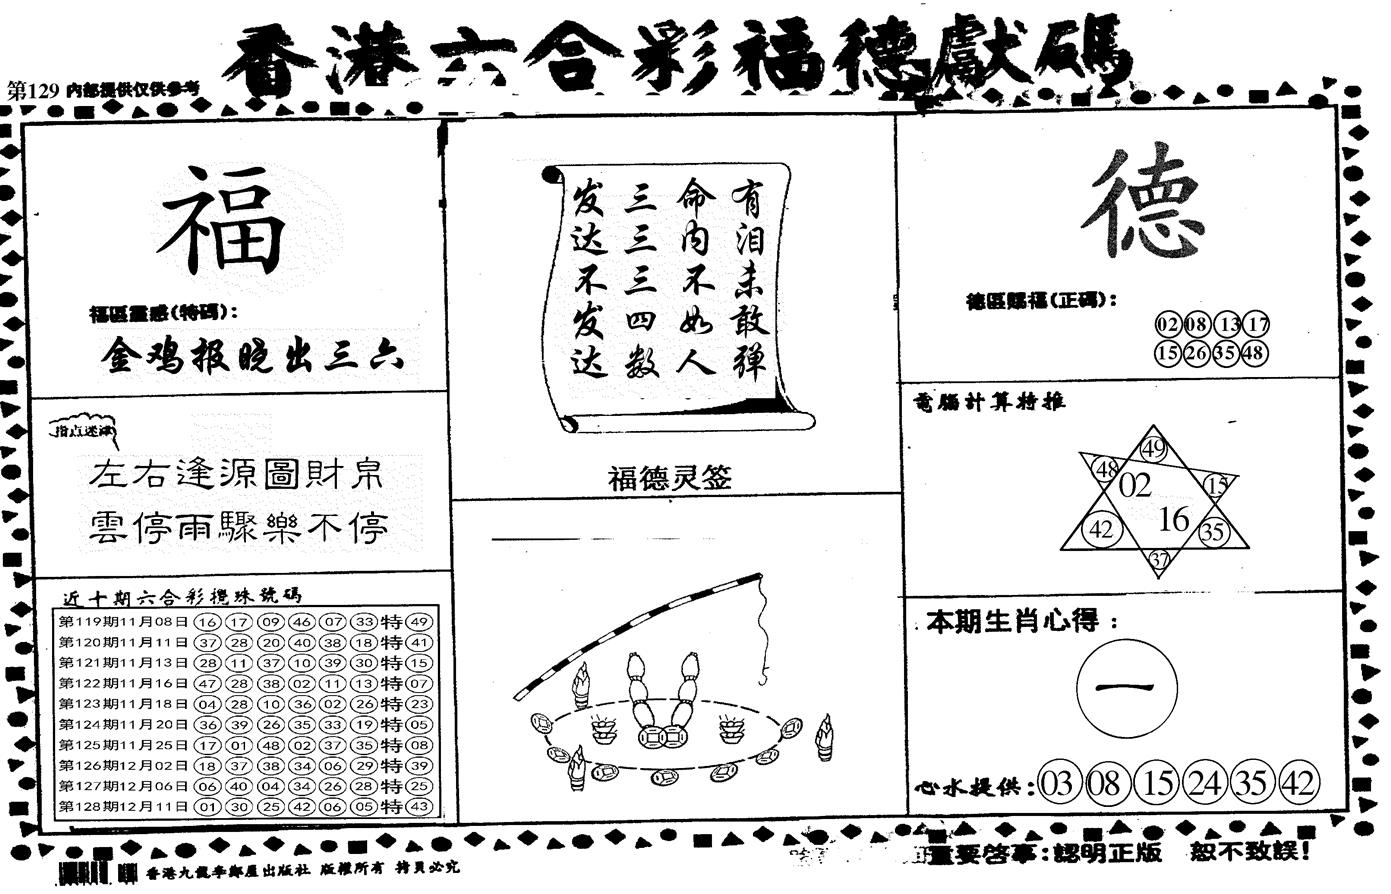 香港六合彩福德獻碼
第129 内部提供仅供参考
福
福區靈感(特碼):
金鸡报晓出三六
指点迷津
左右逢源圖財帛
雲停雨驟樂不停
近十期六合彩攪珠號碼
第119期11月08日 16 17 09 46 07 33 特 49
第120期11月11日 37 28 20 40 38 18 特 41
第121期11月13日 28 11 37 10 39 30 特 15
第122期11月16日 47 28 38 02 11 13 特 07
第123期11月18日 04 28 10 36 02 26 特 23
第124期11月20日 36 39 26 35 33 19 特 05
第125期11月25日 17 01 48 02 37 35 特 08
第126期12月02日 18 37 38 34 06 29 特 39
第127期12月06日 06 40 04 34 26 28 特 25
第128期12月11日 01 30 25 42 06 05 特 43
有泪未敢弹
命内不如人
三三三四数
发达不发达
福德灵签
德
德區賜福(正碼):
02 08 13 17
15 26 35 48
電腦計算特推
49
48 02 15
42 16 35
37
本期生肖心得:
一
心水提供: 03 08 15 24 35 42
重要啓事:認明正版 恕不致誤!
版權所有 拷貝必究